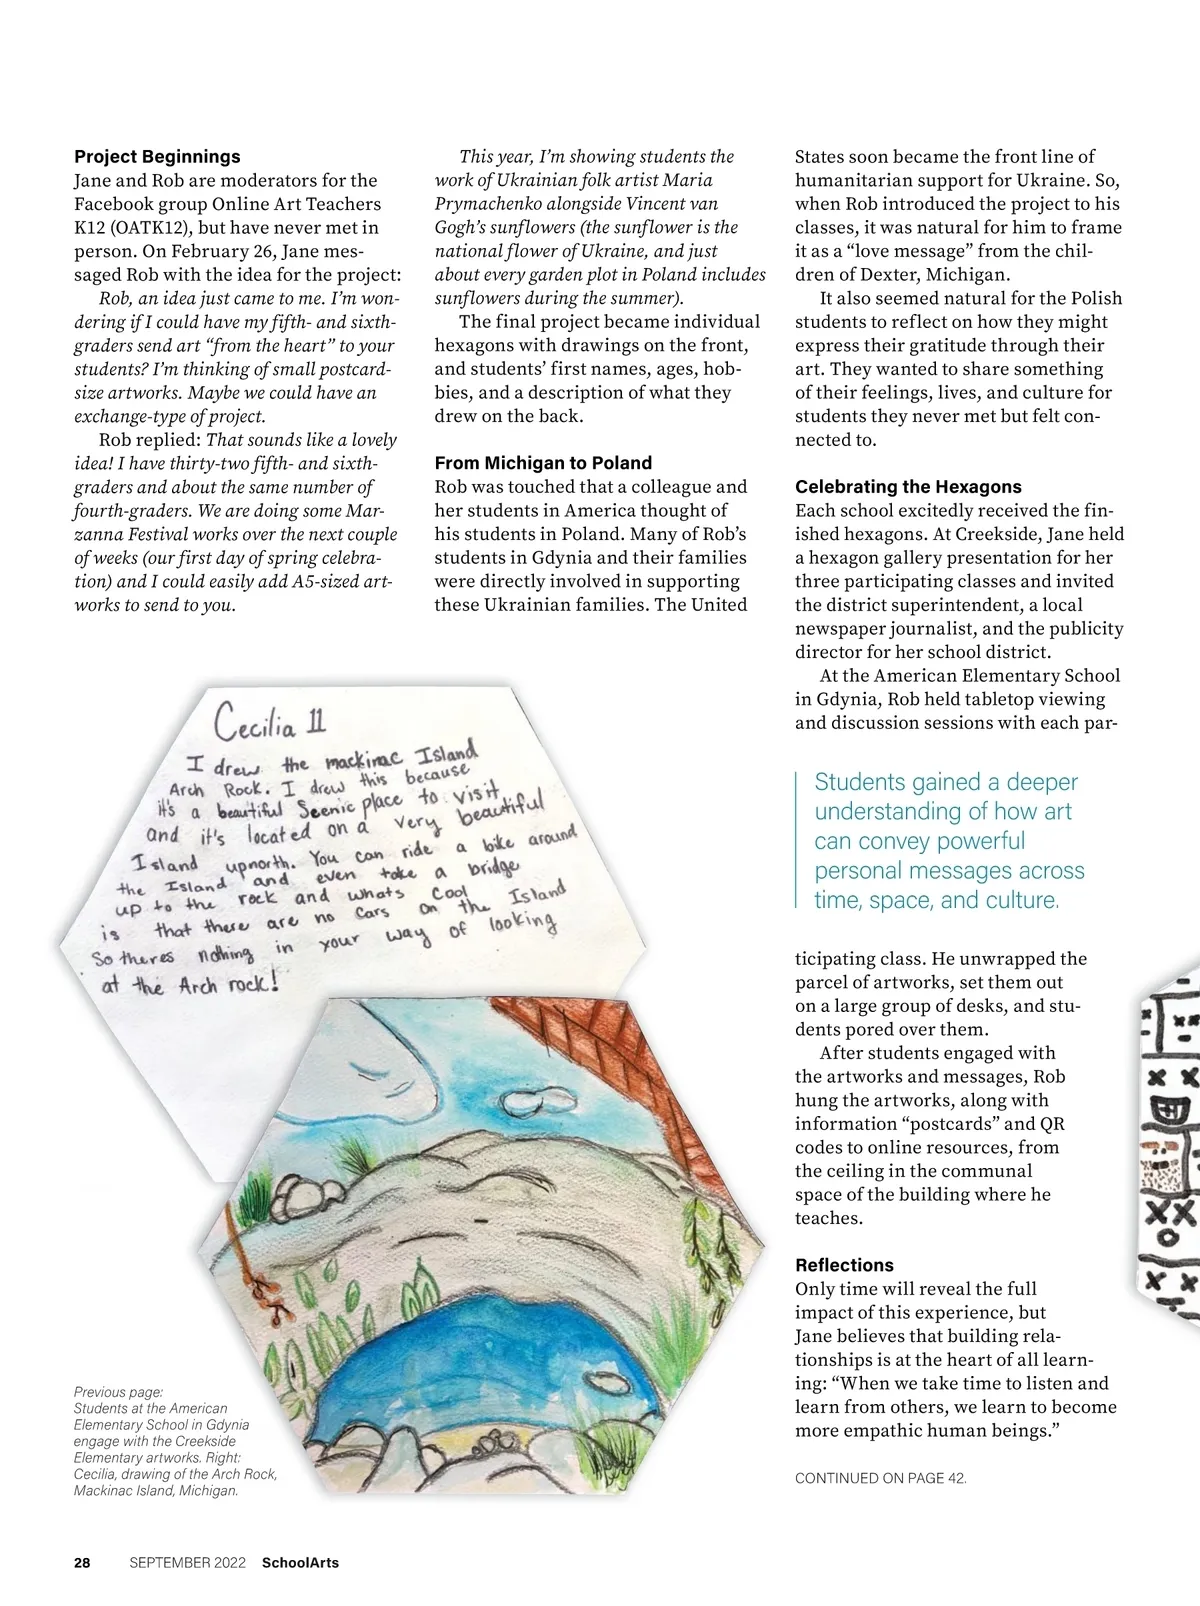 Project Beginnings
Jane and Rob are moderators for the
Facebook group Online Art Teachers
K12 (OATK12), but have never met in
person. On February 26, Jane mes-
saged Rob with the idea for the project:
Rob, an idea just came to me. I’m won-
dering if I could have my fifth- and sixth-
graders send art “from the heart” to your
students? I’m thinking of small postcard-
size artworks. Maybe we could have an
exchange-type of project.
Rob replied: That sounds like a lovely
idea! I have thirty-two fifth- and sixth-
graders and about the same number of
fourth-graders. We are doing some Mar-
zanna Festival works over the next couple
of weeks (our first day of spring celebra-
tion) and I could easily add A5-sized art-
works to send to you.
This year, I’m showing students the
work of Ukrainian folk artist Maria
Prymachenko alongside Vincent van
Gogh’s sunflowers (the sunflower is the
national flower of Ukraine, and just
about every garden plot in Poland includes
sunflowers during the summer).
The final project became individual
hexagons with drawings on the front,
and students’ first names, ages, hob-
bies, and a description of what they
drew on the back.
From Michigan to Poland
Rob was touched that a colleague and
her students in America thought of
his students in Poland. Many of Rob’s
students in Gdynia and their families
were directly involved in supporting
these Ukrainian families. The United
States soon became the front line of
humanitarian support for Ukraine. So,
when Rob introduced the project to his
classes, it was natural for him to frame
it as a “love message” from the chil-
dren of Dexter, Michigan.
It also seemed natural for the Polish
students to reflect on how they might
express their gratitude through their
art. They wanted to share something
of their feelings, lives, and culture for
students they never met but felt con-
nected to.
Celebrating the Hexagons
Each school excitedly received the fin-
ished hexagons. At Creekside, Jane held
a hexagon gallery presentation for her
three participating classes and invited
the district superintendent, a local
newspaper journalist, and the publicity
director for her school district.
At the American Elementary School
in Gdynia, Rob held tabletop viewing
and discussion sessions with each par-
Students gained a deeper
understanding of how art
can convey powerful
personal messages across
time, space, and culture.
ticipating class. He unwrapped the
parcel of artworks, set them out
on a large group of desks, and stu-
dents pored over them.
After students engaged with
the artworks and messages, Rob
hung the artworks, along with
information “postcards” and QR
codes to online resources, from
the ceiling in the communal
space of the building where he
teaches.
Reflections
Only time will reveal the full
impact of this experience, but
Jane believes that building rela-
tionships is at the heart of all learn-
ing: “When we take time to listen and
learn from others, we learn to become
more empathic human beings.”
CONTINUED ON PAGE 42.
Cecilia 11
I drew the mackinac Island
Arch Rock. I drew this because
it's a beautiful Scenic place to visit
and it's located on a very beautiful
Island upnorth. You can ride a bike around
the Island and even take a bridge
up to the rock and whats cool
is that there are no cars on the Island
So theres nothing in your way of looking
at the Arch rock!
Previous page:
Students at the American
Elementary School in Gdynia
engage with the Creekside
Elementary artworks. Right:
Cecilia, drawing of the Arch Rock,
Mackinac Island, Michigan.
28 SEPTEMBER 2022 SchoolArts